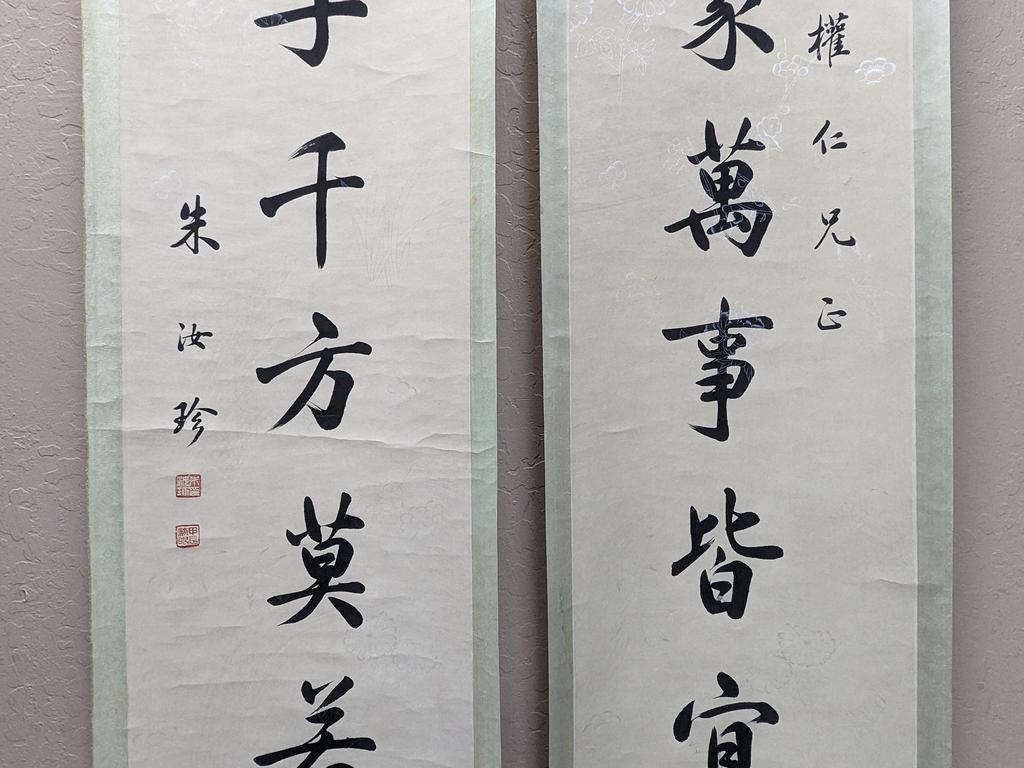 權仁兄正
家萬事皆宜
子千方莫若
朱汝珍